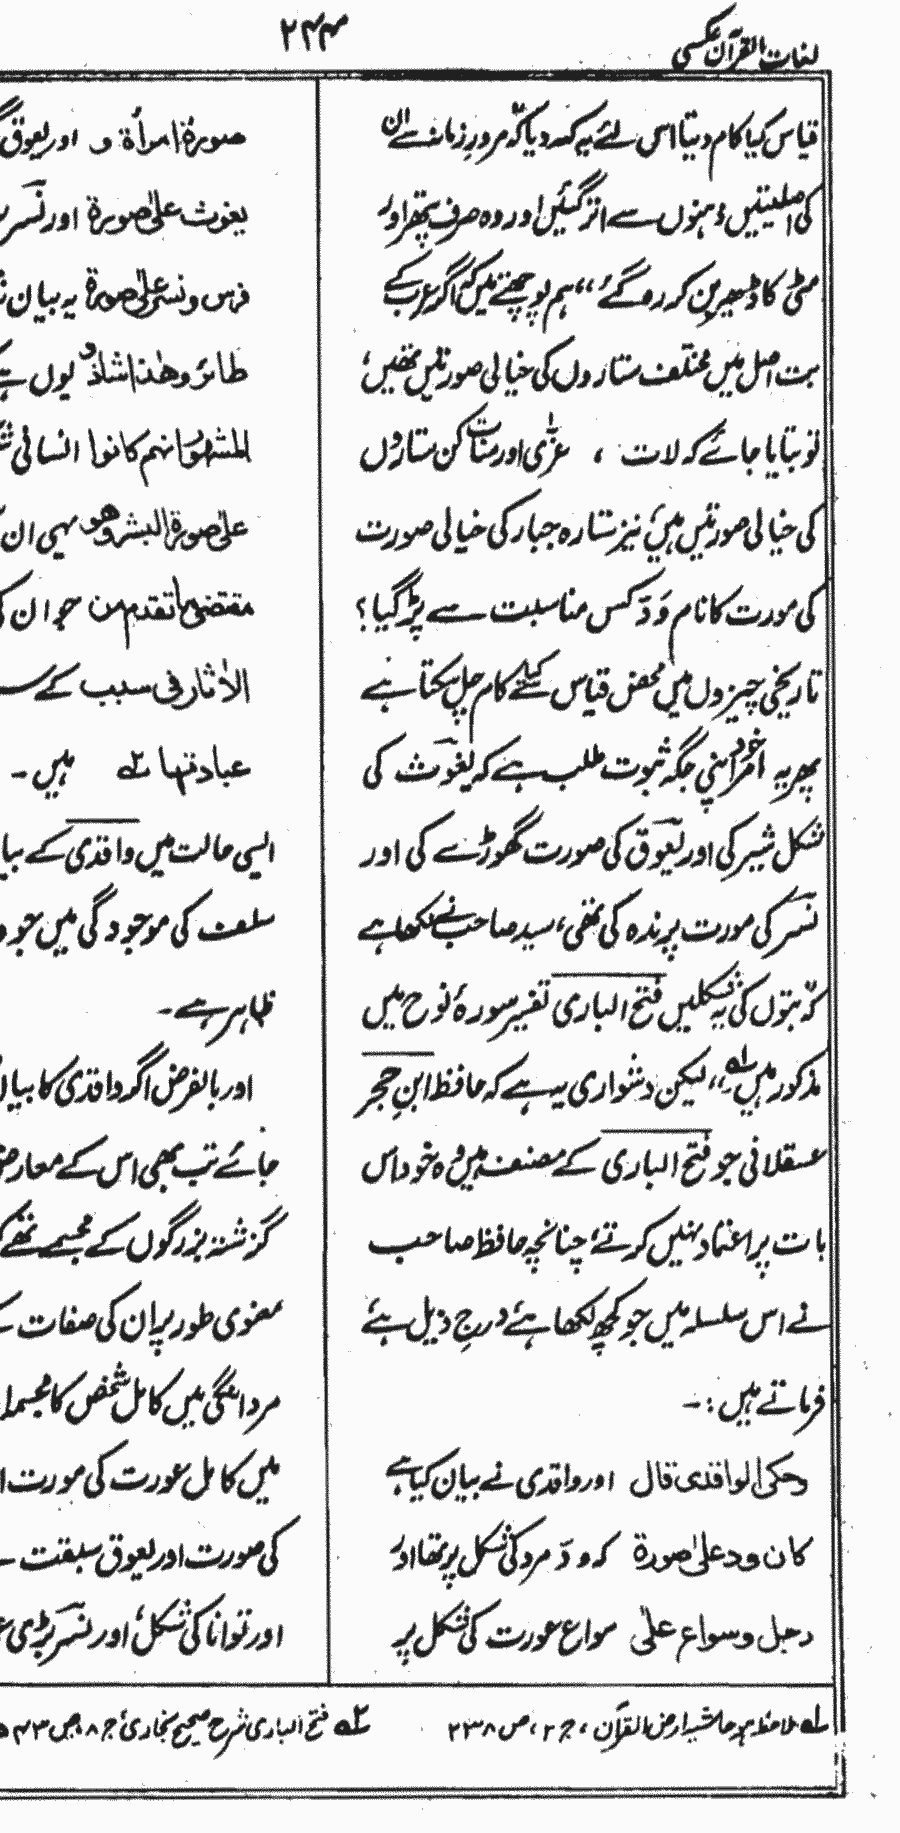 لغات القرآن عکسی
۲۴۴
قیاس کیا کام دیتا اسی لئے یہ کہہ دیا کہ مرورِ زمانہ سے ان
کی اصلیتیں ذہنوں سے اتر گئیں اور وہ صرف پتھر اور
مٹی کا ڈھیر بن کر رہ گئے" ہم پوچھتے ہیں کہ اگر عرب کے
بت اصل میں مختلف ستاروں کی خیالی صورتیں تھیں،
تو بتایا جائے کہ لات ، عزّٰی اور مناۃ کن ستاروں
کی خیالی صورتیں ہیں، نیز ستارہ جبار کی خیالی صورت
کی مورت کا نام وَدّ کس مناسبت سے پڑ گیا؟
تاریخی چیزوں میں محض قیاس سے کیا کام چل سکتا ہے
پھر یہ امر خود اپنی جگہ ثبوت طلب ہے کہ یغوث کی
شکل شیر کی اور یعوق کی صورت گھوڑے کی اور
نسر کی مورت پرندہ کی تھی، سید صاحب نے لکھا ہے
کہ بتوں کی یہ شکلیں فتح الباری تفسیر سورۂ نوح میں
مذکور ہیں لہ" لیکن دشواری یہ ہے کہ حافظ ابن حجر
عسقلانی جو فتح الباری کے مصنف ہیں وہ خود اس
بات پر اعتماد نہیں کرتے، چنانچہ حافظ صاحب
نے اس سلسلہ میں جو کچھ لکھا ہے درجِ ذیل ہے
فرماتے ہیں :-
وحکی الواقدی قال اور واقدی نے بیان کیا ہے
کان ود علیٰ صورۃ کہ ودّ مرد کی شکل پر تھا اور
رجل وسواع علیٰ سواع عورت کی شکل پر
صورۃ امرأۃ و اور یعوق
یغوث علیٰ صورۃ اور نسر
فرس ونسر علیٰ صورۃ یہ بیان
طائر وھٰذا شاذ و یوں ہے
المشہور انہم کانوا انسانی
علیٰ صورۃ البشر وھو یہی ان
مقتضیٰ ما تقدم من جو ان
الاٰثار فی سبب کے
عبادتہا ۲ہ ہیں۔
ایسی حالت میں واقدی کے
سلف کی موجودگی میں جو
ظاہر ہے۔
اور بالفرض اگر واقدی کا بیان
جائے تب بھی اس کے
گزشتہ بزرگوں کے مجسمے تھے
معنوی طور پر ان کی صفات
مردانگی میں کامل شخص کا مجسمہ
میں کامل عورت کی مورت
کی صورت اور یعوق سبقت
اور توانا کی شکل، اور نسر بڑی
۱ہ ملاحظہ ہو حاشیہ ارض القرآن، ج ۲، ص ۲۳۸
۲ہ فتح الباری شرح صحیح بخاری ج ۸، ص ۵۴۳